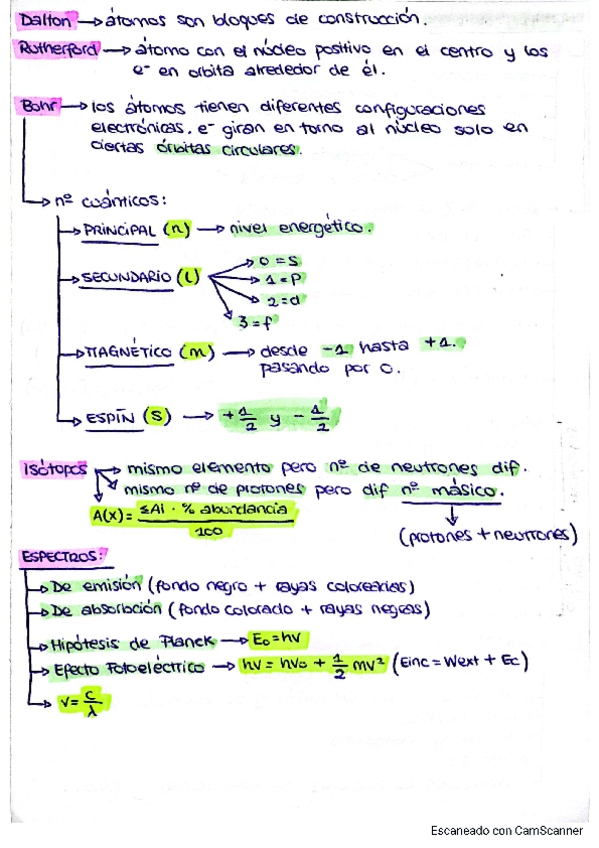 Dalton → átomos son bloques de construcción.
Rutherford → átomo con el núcleo positivo en el centro y los
e⁻ en orbita alrededor de él.
Bohr → los átomos tienen diferentes configuraciones
electrónicas. e⁻ giran en torno al núcleo solo en
ciertas órbitas circulares.
→ nº cuánticos:
→ PRINCIPAL (n) → nivel energético.
→ SECUNDARIO (l)
0 = s
1 = p
2 = d
3 = f
→ MAGNÉTICO (m) → desde -1 hasta +1.
pasando por 0.
→ ESPÍN (s) → +1/2 y -1/2
Isótopos → mismo elemento pero nº de neutrones dif.
mismo nº de protones pero dif nº másico.
A(x) = ΣAi · % abundancia / 100
(protones + neutrones)
ESPECTROS:
→ De emisión (fondo negro + rayas coloreadas)
→ De absorbción (fondo colorado + rayas negras)
→ Hipótesis de Planck → E₀ = hν
→ Efecto Fotoeléctrico → hν = hν₀ + 1/2 mv² (Einc = Wext + Ec)
→ ν = c/λ
Escaneado con CamScanner